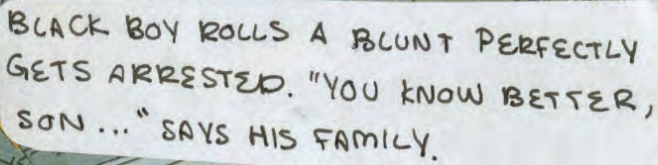 BLACK BOY ROLLS A BLUNT PERFECTLY
GETS ARRESTED. "YOU KNOW BETTER,
SON..." SAYS HIS FAMILY.